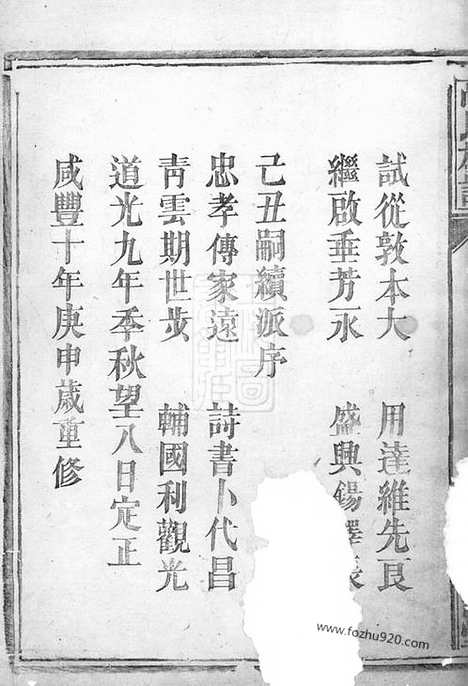 試從敦本大　用達維先良
繼啟垂芳永　盛興錫澤長
己丑嗣續派序
忠孝傳家遠　詩書卜代昌
青雲期世步　輔國利觀光
道光九年季秋望八日定正
咸豐十年庚申歲重修
www.fozhu920.com